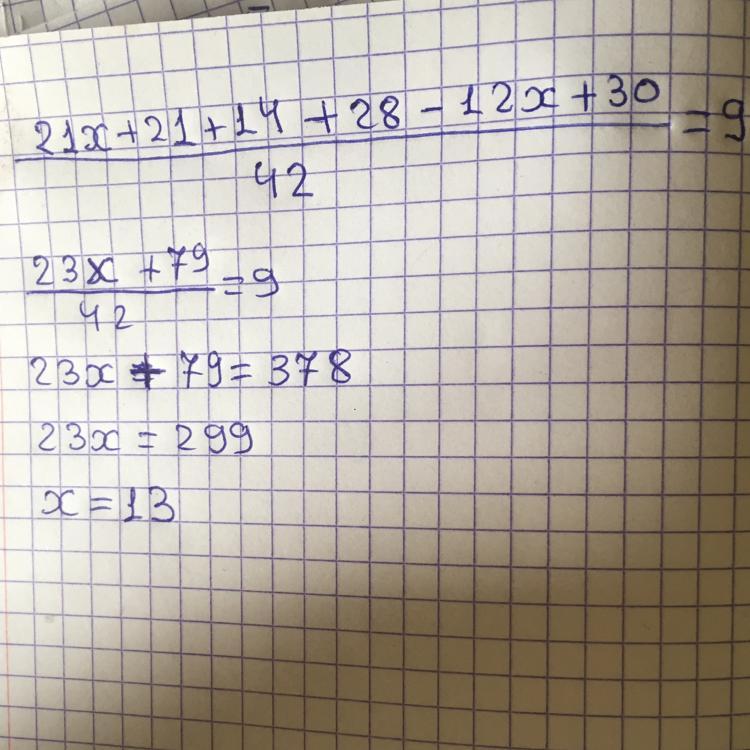 21x+21+14+28-12x+30
42
=9
23x+79
42
=9
23x+79=378
23x=299
x=13